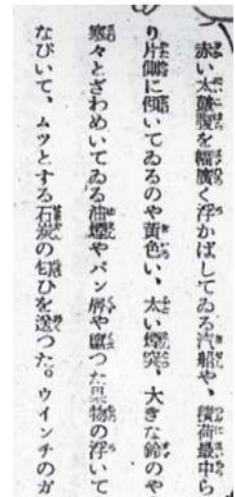 赤い太皷腹を幅廣く浮かばしてゐる汽船や、積荷最中ら
り片側に傾いてゐるのや黄色い、太い煙突、大きな鈴のや
寒々とざわめいてゐる油煙やパン屑や腐つた果物の浮いて
なびいて、ムツとする石炭の匂ひを送つた。ウインチのガ